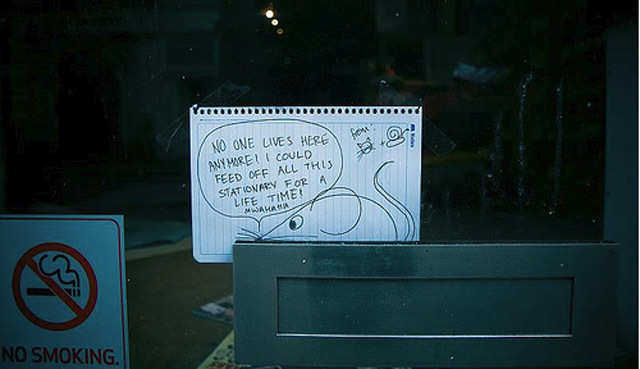 NO ONE LIVES HERE
ANYMORE! I COULD
FEED OFF ALL THIS
STATIONARY FOR A
LIFE TIME!
MWAHAHA
from:
+
NO SMOKING.